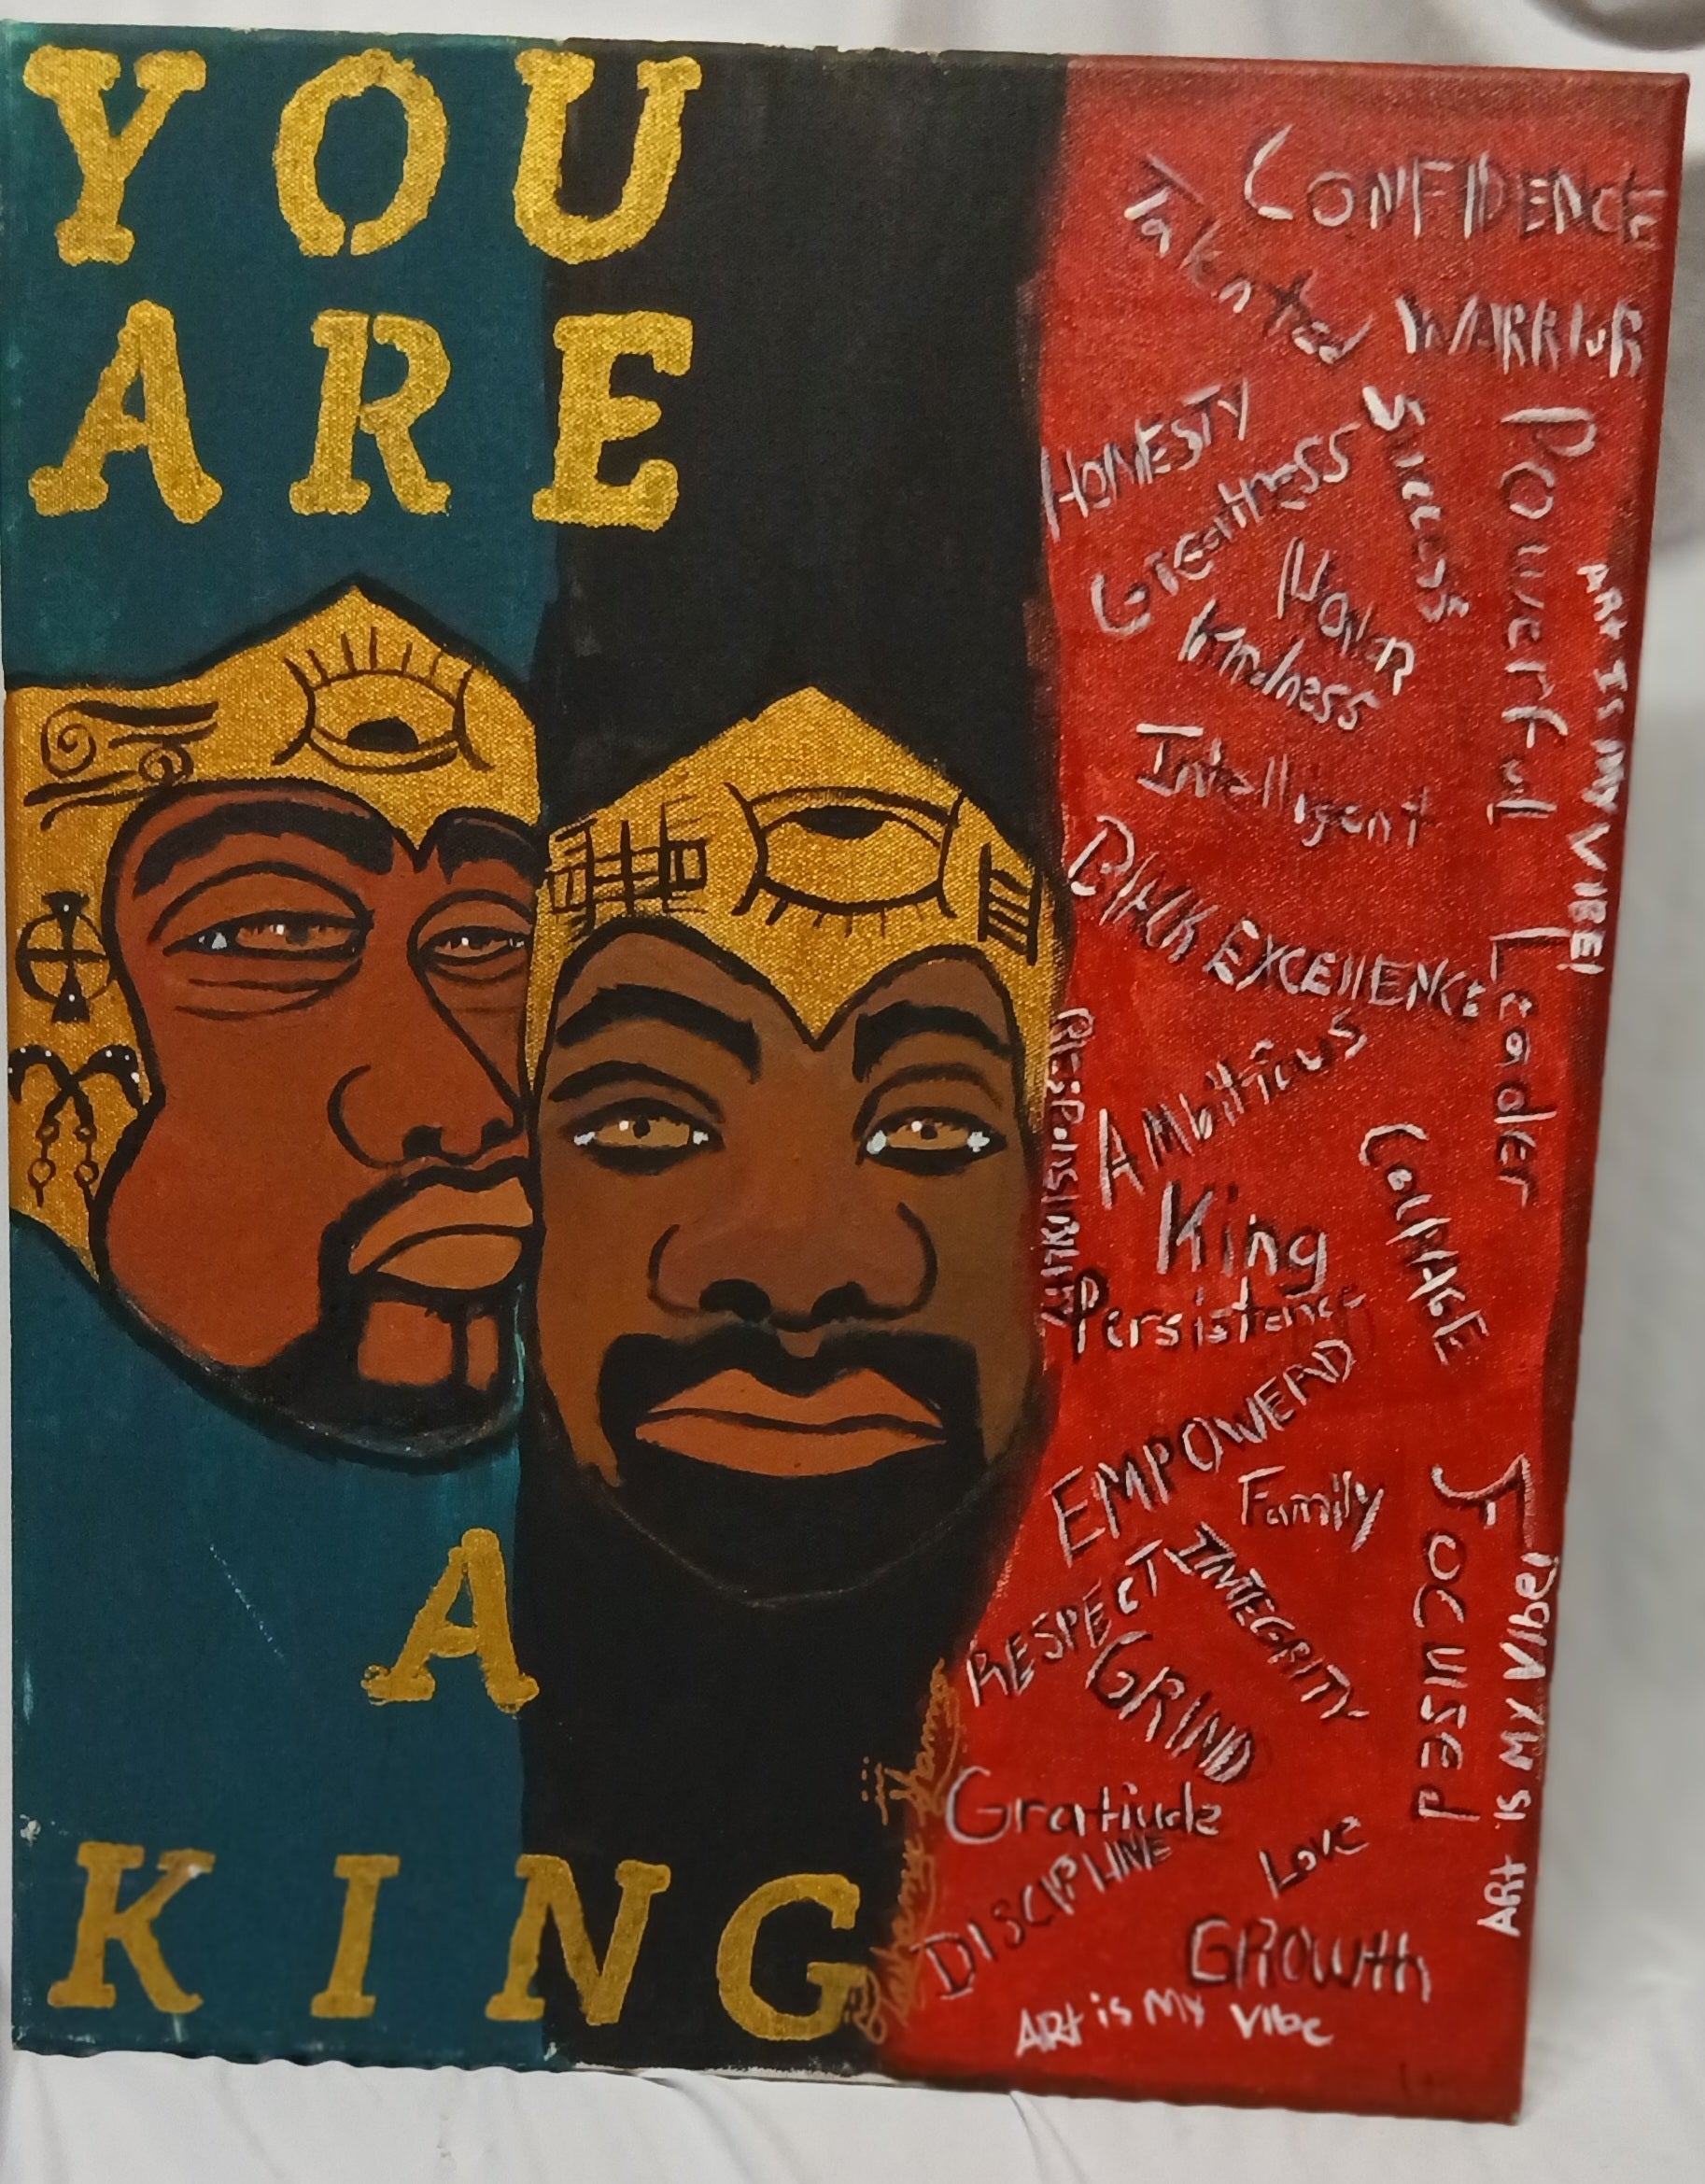 YOU
ARE
A
KING
CONFIDENCE
Talented
WARRIOR
HONESTY
Greatness
Success
Powerful
HONOR
Kindness
ART IS MY VIBE!
Intelligent
Black EXCEllENCE
Leader
Ambitious
RESPONSIBILITY
King
COURAGE
Persistence
EMPOWERD
Family
FOCUSED
RESPECT
INTEGRITY
GRIND
ART IS MY VIBE!
Gratiude
DISCIPLINE
Love
GROWth
ARt is MY VIbe